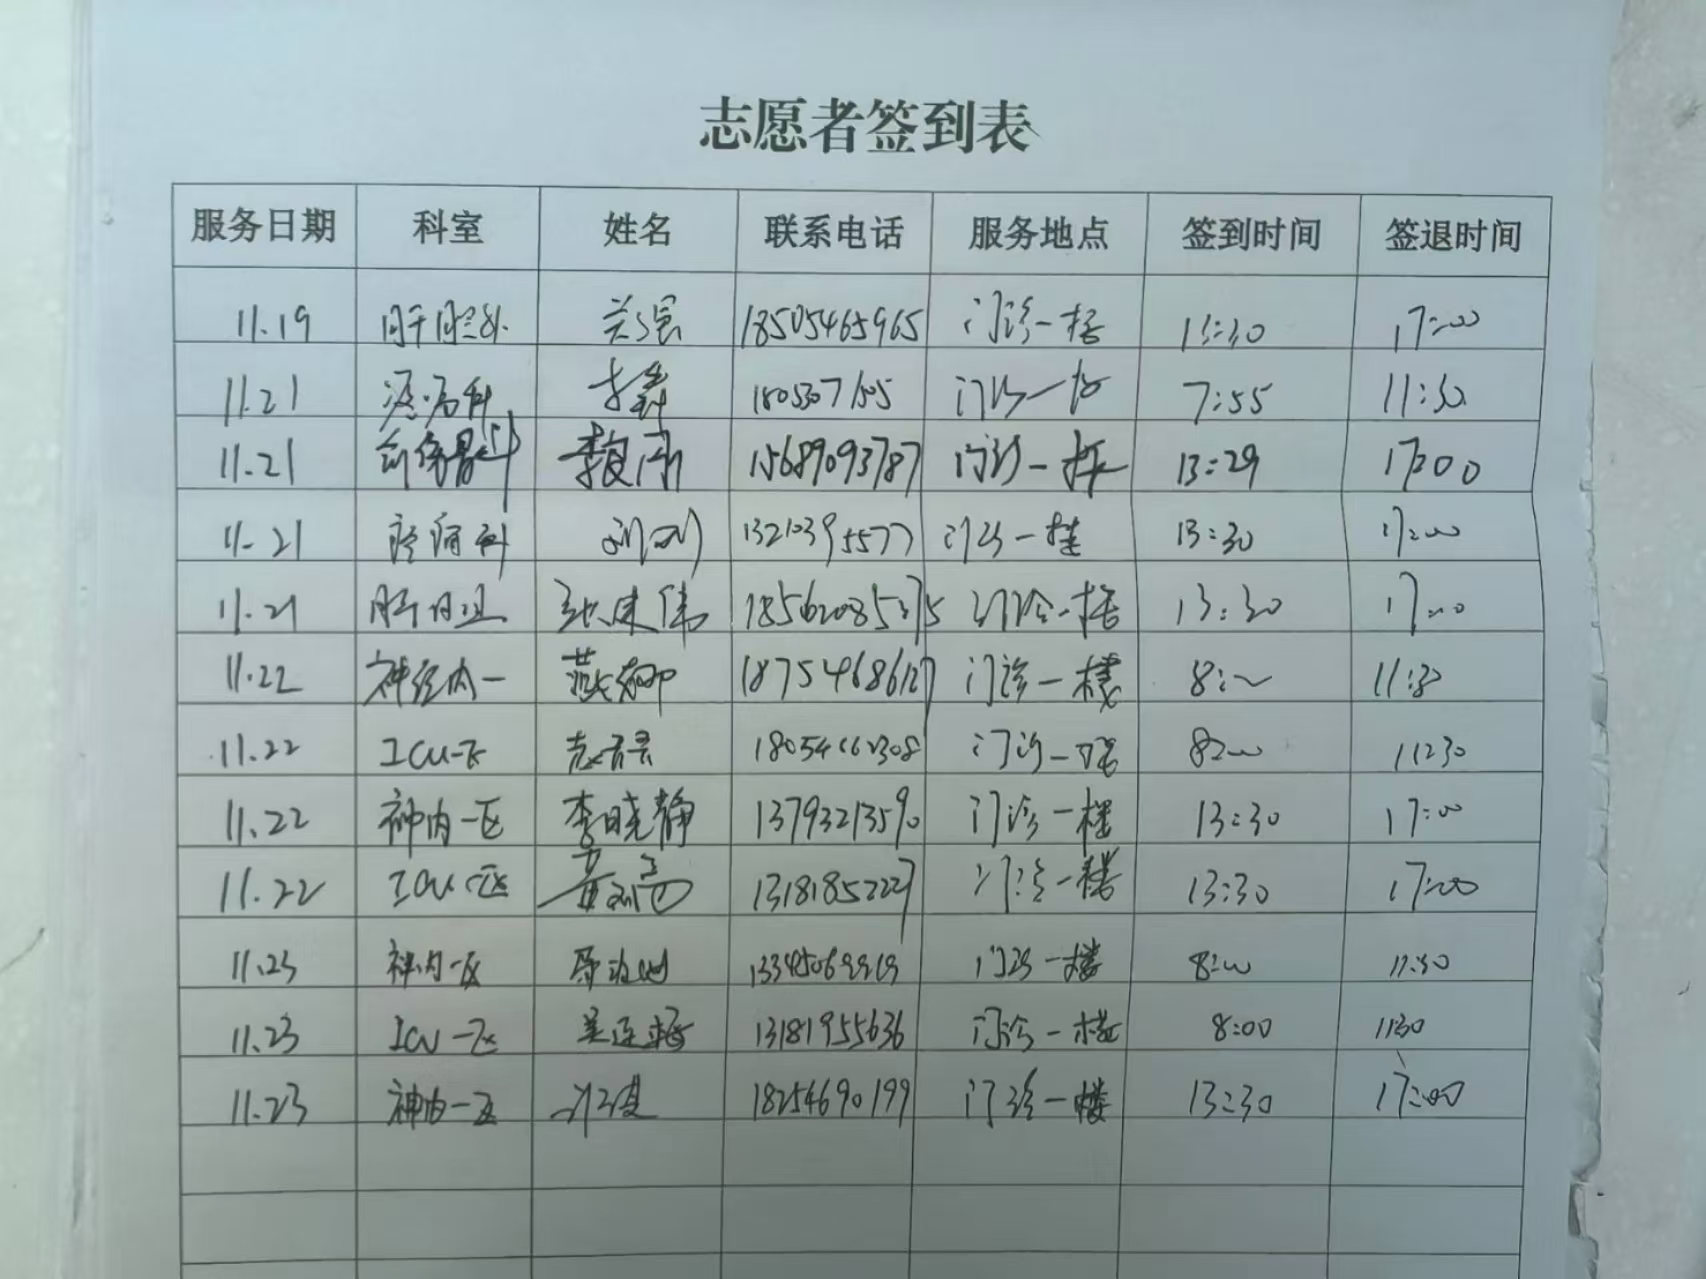 志愿者签到表
服务日期 科室 姓名 联系电话 服务地点 签到时间 签退时间
11.19 肝胆外 18505465965 门诊一楼 13:30 17:00
11.21 7:55 11:30
11.21 15689093787 门诊一楼 13:29 17:00
11.21 疼痛科 13210395577 门诊一楼 13:30 17:00
11.21 门诊一楼 13:30 17:00
11.22 神经内一 燕柳 18754686127 门诊一楼 8:00 11:30
11.22 ICU一区 门诊一楼 8:00 11:30
11.22 神内一区 李晓静 13793213590 门诊一楼 13:30 17:00
11.22 ICU一区 13181852227 门诊一楼 13:30 17:00
11.23 神内一区 门诊一楼 8:00 11:30
11.23 ICU一区 吴连梅 13181955636 门诊一楼 8:00 1130
11.23 神内一区 18254690199 门诊一楼 13:30 17:00